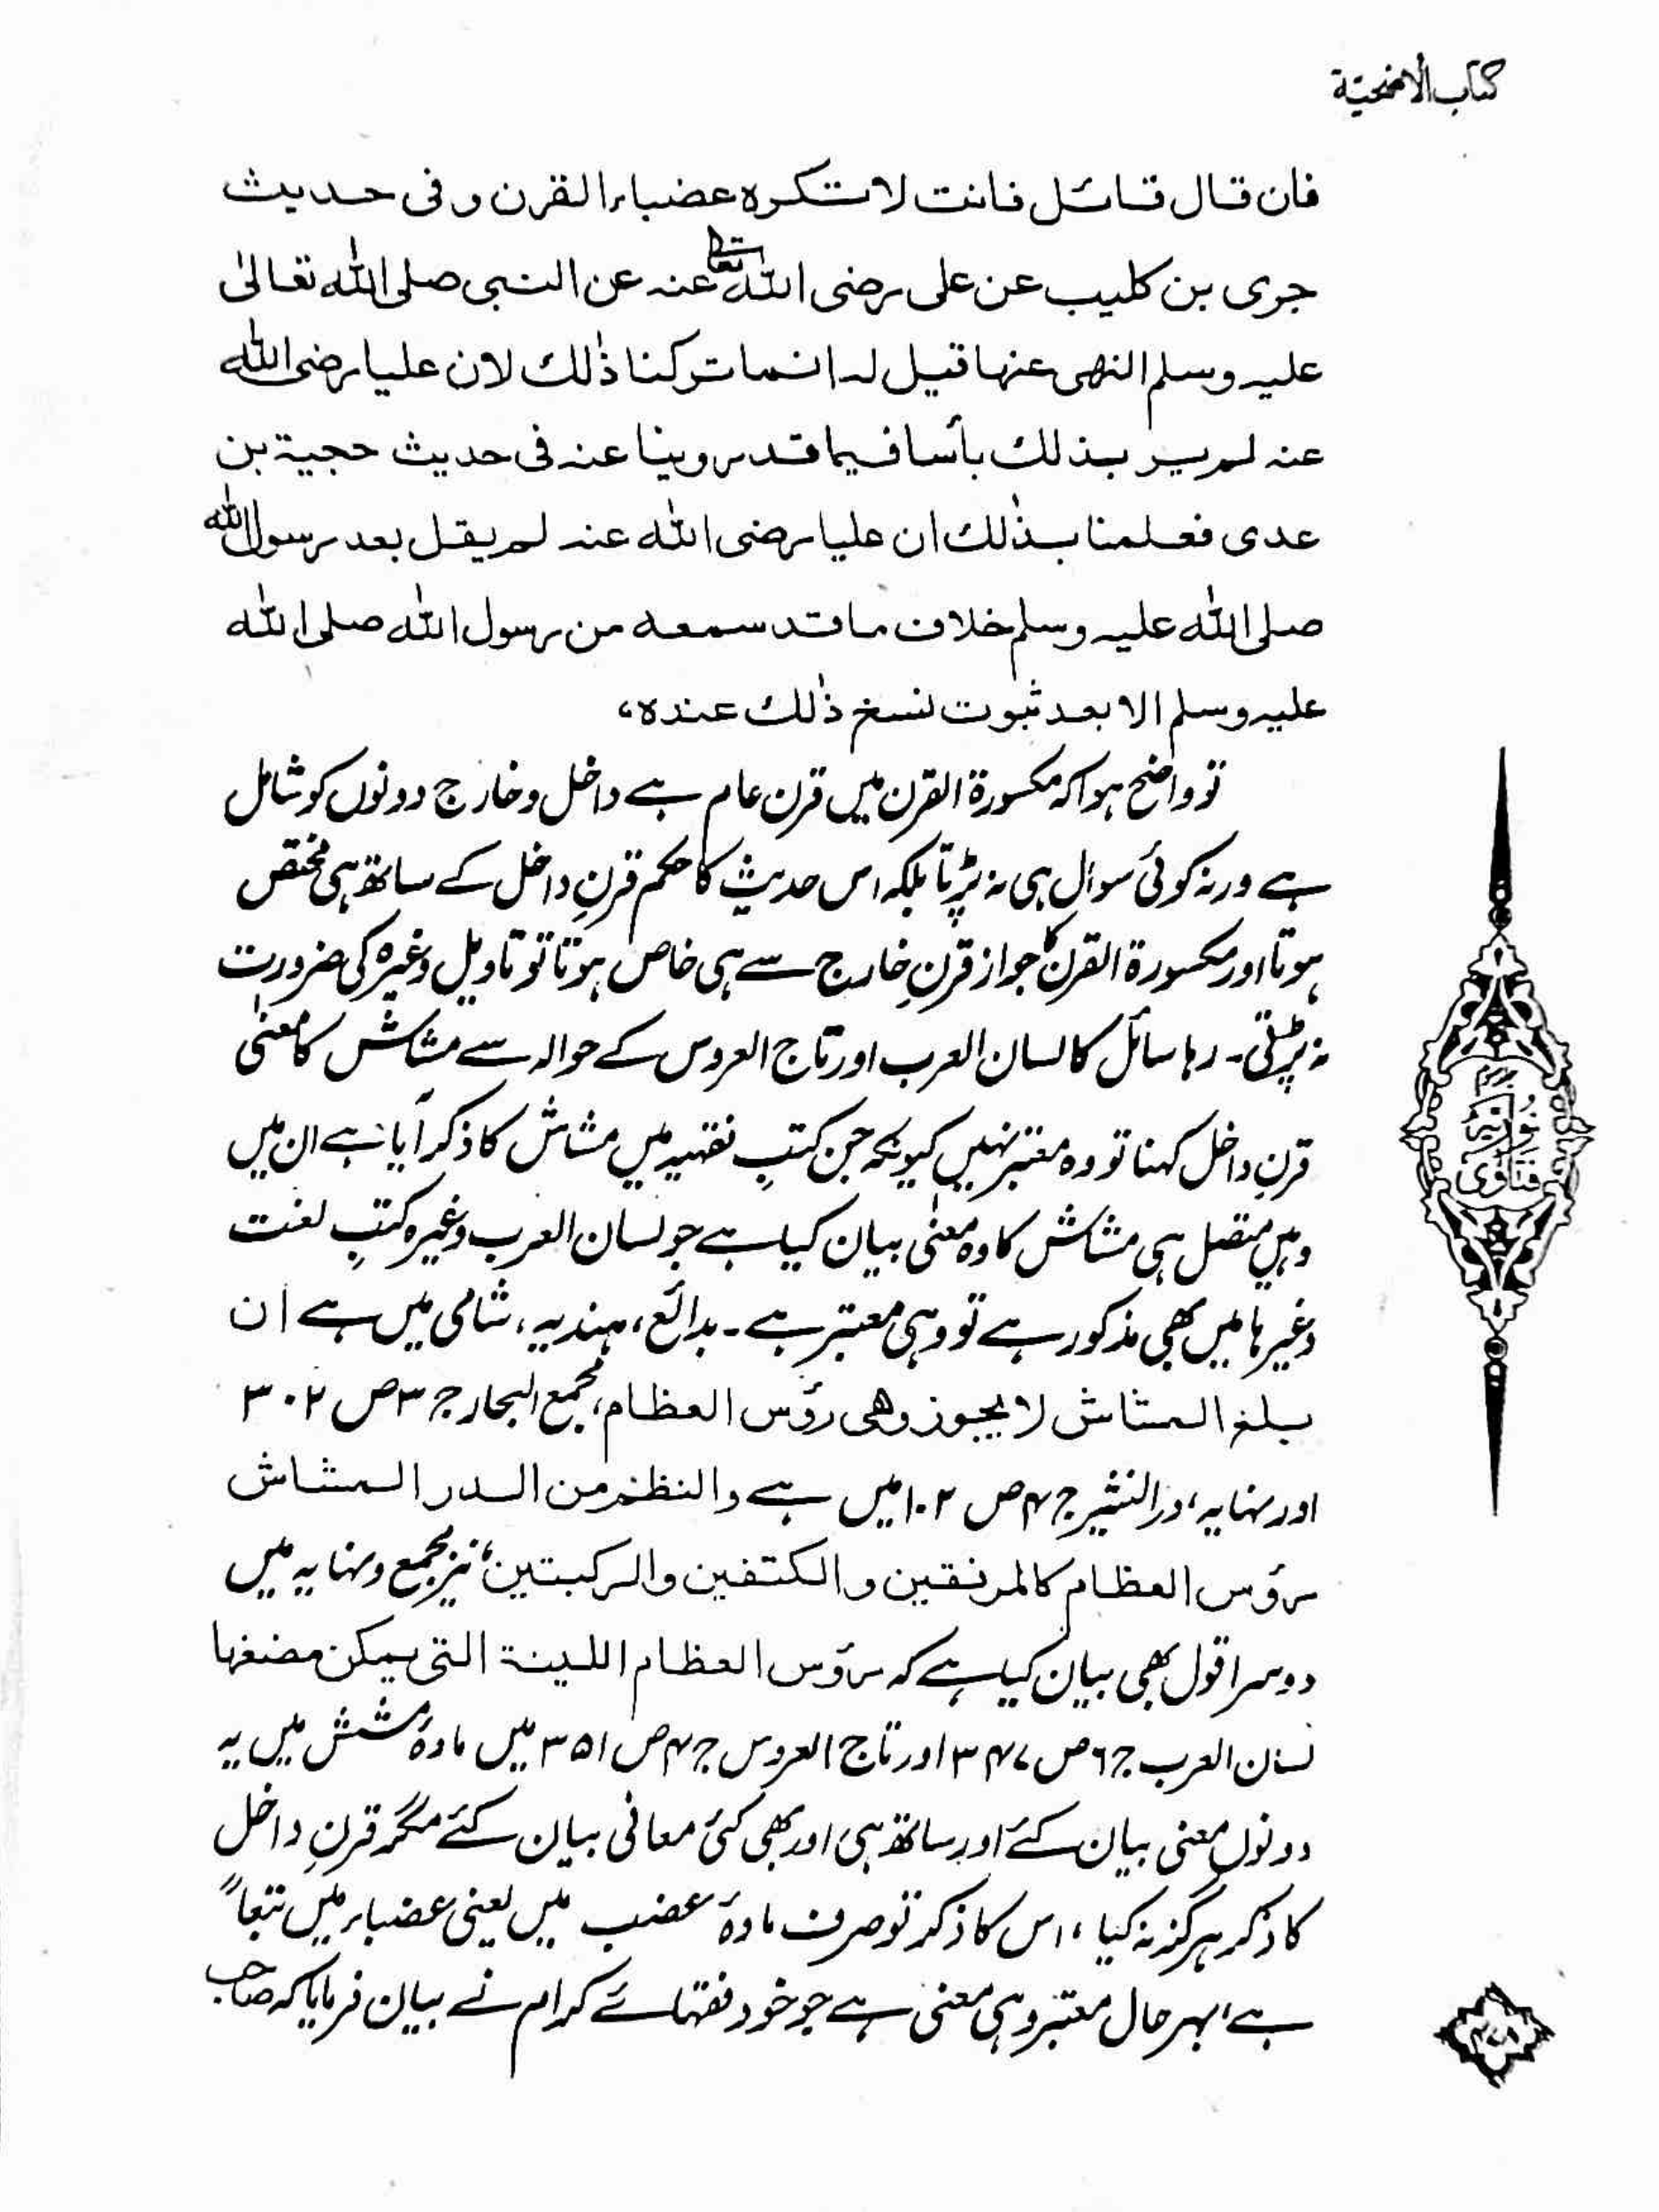 کتاب الاضحیّة
فان قال قائل فانت لا تکره عضباء القرن و فی حدیث
جری بن کلیب عن علی رضی اللہ تعالٰی عنہ عن النبی صلی اللہ تعالیٰ
علیہ وسلم النھی عنہا قیل لہ انما ترکنا ذٰلک لان علیا رضی اللہ
عنہ لم یر بذلک بأسا فیما قد روینا عنہ فی حدیث حجیة بن
عدی فعلمنا بذٰلک ان علیا رضی اللہ عنہ لم یقل بعد رسول اللہ
صلی اللہ علیہ وسلم خلاف ما قد سمعہ من رسول اللہ صلی اللہ
علیہ وسلم الا بعد ثبوت نسخ ذٰلک عندہ،
تو واضح ہوا کہ مکسورة القرن میں قرن عام ہے داخل و خارج دونوں کو شامل
ہے ورنہ کوئی سوال ہی نہ پڑتا بلکہ اس حدیث کا حکم قرنِ داخل کے ساتھ ہی مختص
ہوتا اور مکسورة القرن کا جواز قرنِ خارج سے ہی خاص ہوتا تو تاویل وغیرہ کی ضرورت
نہ پڑتی۔ رہا سائل کا لسان العرب اور تاج العروس کے حوالہ سے مشاش کا معنیٰ
قرنِ داخل کہنا تو وہ معتبر نہیں کیونکہ جن کتبِ فقہیہ میں مشاش کا ذکر آیا ہے ان میں
وہیں متصل ہی مشاش کا وہ معنٰی بیان کیا ہے جو لسان العرب وغیرہ کتبِ لغت
وغیرہا میں بھی مذکور ہے تو وہی معتبر ہے۔ بدائع، ہندیہ، شامی میں ہے ان
بلغ المشاش لا یجوز وھی رؤس العظام، مجمع البحار ج ۳ ص ۳۰۲
اور نہایہ، در النثیر ج ۴ ص ۱۰۲ میں ہے والنظم من الدر المشاش
رؤس العظام کالمرفقین والکتفین والرکبتین، نیز مجمع و نہایہ میں
دوسرا قول بھی بیان کیا ہے کہ رؤس العظام اللینة التی یمکن مضغھا
لسان العرب ج ۶ ص ۳۴۷ اور تاج العروس ج ۴ ص ۳۵۱ میں مادۂ مشش میں یہ
دونوں معنی بیان کئے اور ساتھ ہی اور بھی کئی معانی بیان کئے مگر قرنِ داخل
کا ذکر ہرگز نہ کیا، اس کا ذکر تو صرف مادۂ عضب میں یعنی عضباء میں تبعاً
ہے، بہر حال معتبر وہی معنی ہے جو خود فقہائے کرام نے بیان فرمایا کہ صاحب
نُورِیَّہ
فتاویٰ